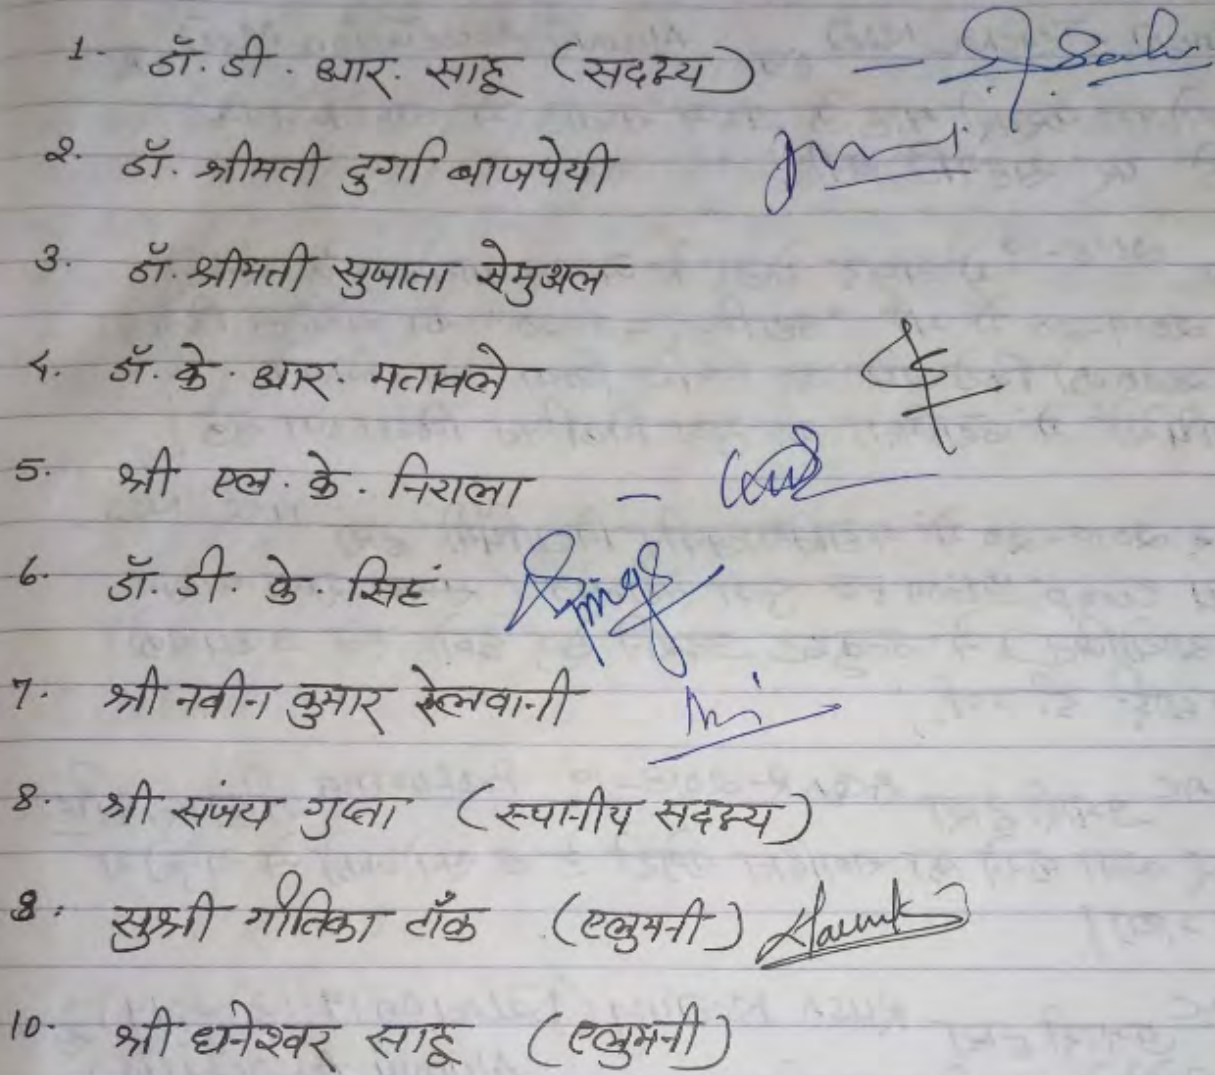 1. डॉ. डी. आर. साहू (सदस्य) - D. Sahu
2. डॉ. श्रीमती दुर्गा बाजपेयी
3. डॉ. श्रीमती सुजाता सेमुअल
4. डॉ. के. आर. मतावले
5. श्री एल. के. निराला -
6. डॉ. डी. के. सिहं
7. श्री नवीन कुमार हेलवानी
8. श्री संजय गुप्ता (स्थानीय सदस्य)
9. सुश्री गीतिका टॉंक (एलुमनी)
10. श्री धनेश्वर साहू (एलुमनी)